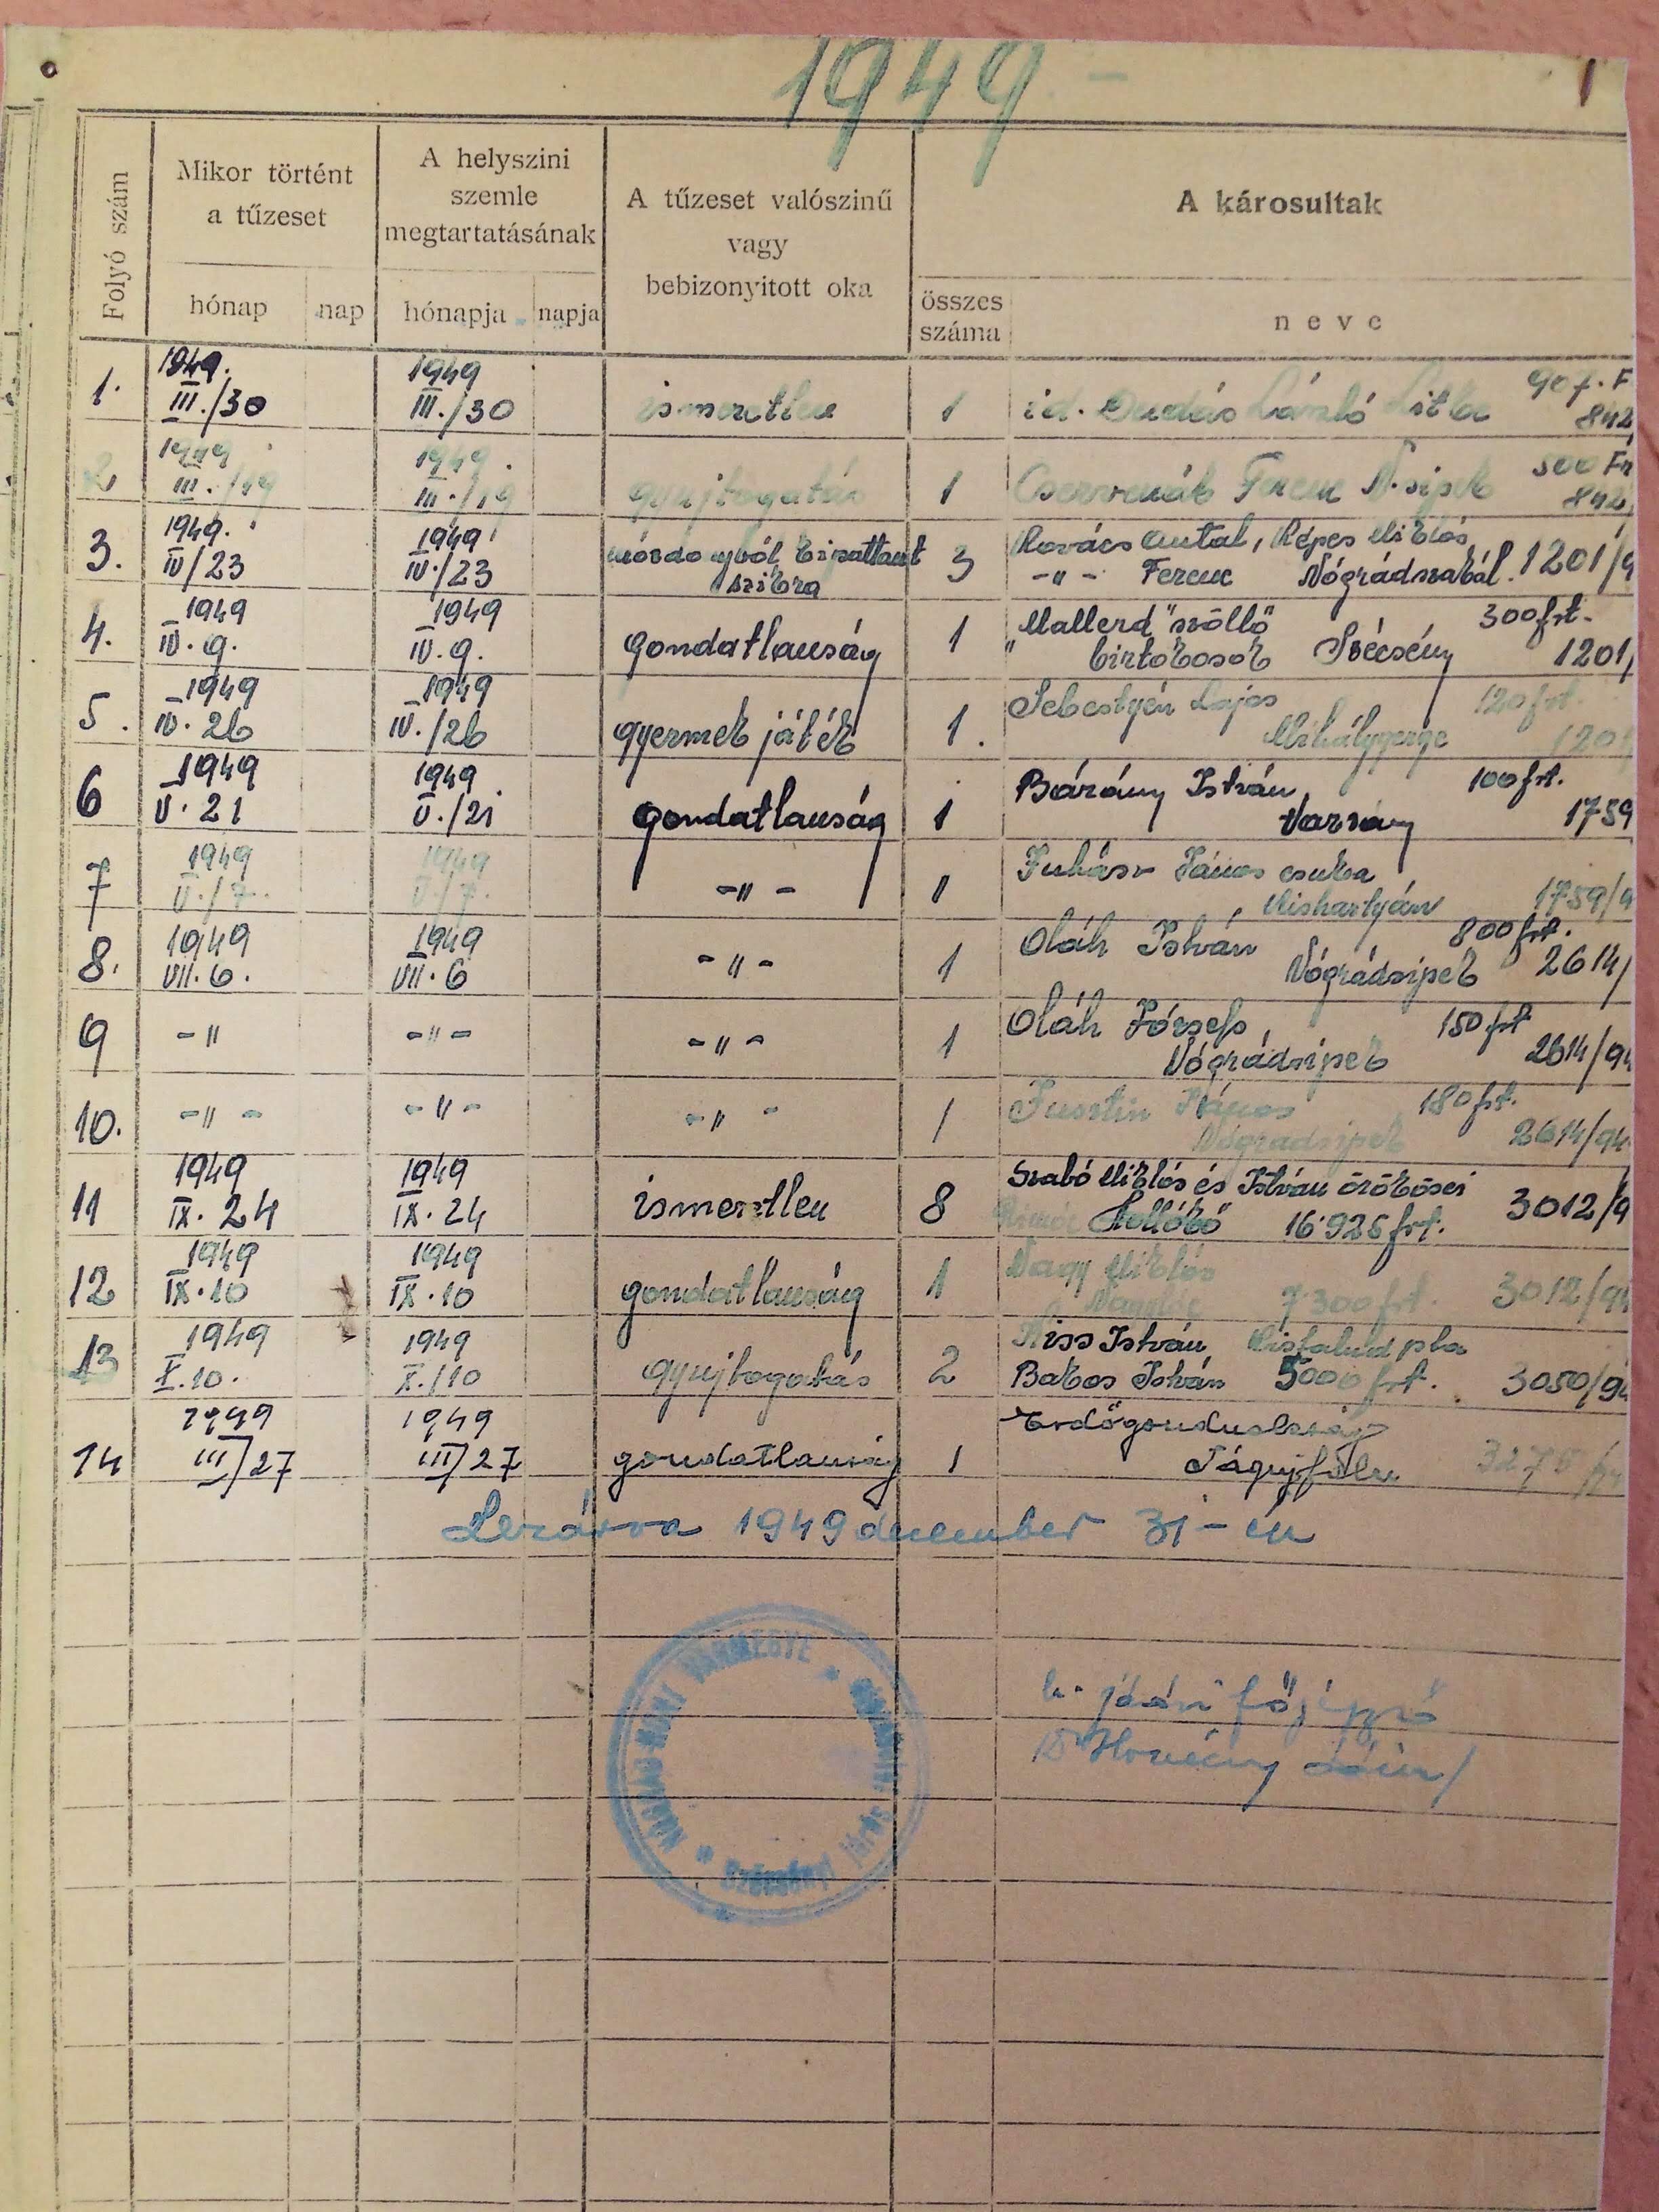 1949 –
Folyó szám
Mikor történt
a tűzeset
hónap
nap
A helyszini
szemle
megtartatásának
hónapja
napja
A tűzeset valószinű
vagy
bebizonyitott oka
A károsultak
összes
száma
neve
1. 1949. III./30 1949 III./30 ismeretlen 1 id. Dudás László Litke 907.F
842
2 1949 III./19 1949. III./19 gyujtogatás 1 Ferenc N.sipek 500 Fr
842
3. 1949. IV/23 1949 IV./23 kipattant 3 Kovács Antal, Képes Miklós
szikra –"– Ferenc Nógrádszakál. 1201/9
4. 1949 IV.9. 1949 IV.9. gondatlanság 1 "Mallerd" szöllő 300 frt.
birtokosok Szécsény 1201/
5. 1949 IV.26 1949 IV./26 gyermek játék 1. Sebestyén Lajos 120 frt.
Mihálygerge 1201
6 1949 V.21 1949 V./21 gondatlanság 1 Bárány István 100 frt.
Varsány 1759
7 1949 V./7. 1949 V./7. –"– 1 Juhász János csuka
Kishartyán 1759/9
8. 1949 VII.6. 1949 VII.6 –"– 1 Oláh István 800 frt.
Nógrádsipek 2614/
9 –" –"– –"– 1 Oláh József 150 frt
Nógrádsipek 2614/94
10. –"– –"– –"– 1 Jusztin János 180 frt.
Nógrádsipek 2614/94
11 1949 IX.24 1949 IX.24 ismeretlen 8 Szabó Miklós és István örökösei
Hollókő 16.926 frt. 3012/9
12 1949 IX.10 1949 IX.10 gondatlanság 1 Nagy Miklós
Nagylóc 7.300 frt. 3012/94
13 1949 X.10. 1949 X./10 gyujtogatás 2 Kiss István Kisfalud pta
Bakos István 5000 frt. 3050/94
14 1949 III/27 1949 III/27 gondatlanság 1 Erdőgondnokság
Ságujfalu
Lezárva 1949 december 31-én
járási főjegyző
NÓGRÁD-HONT VÁRMEGYE * Szécsényi járás *